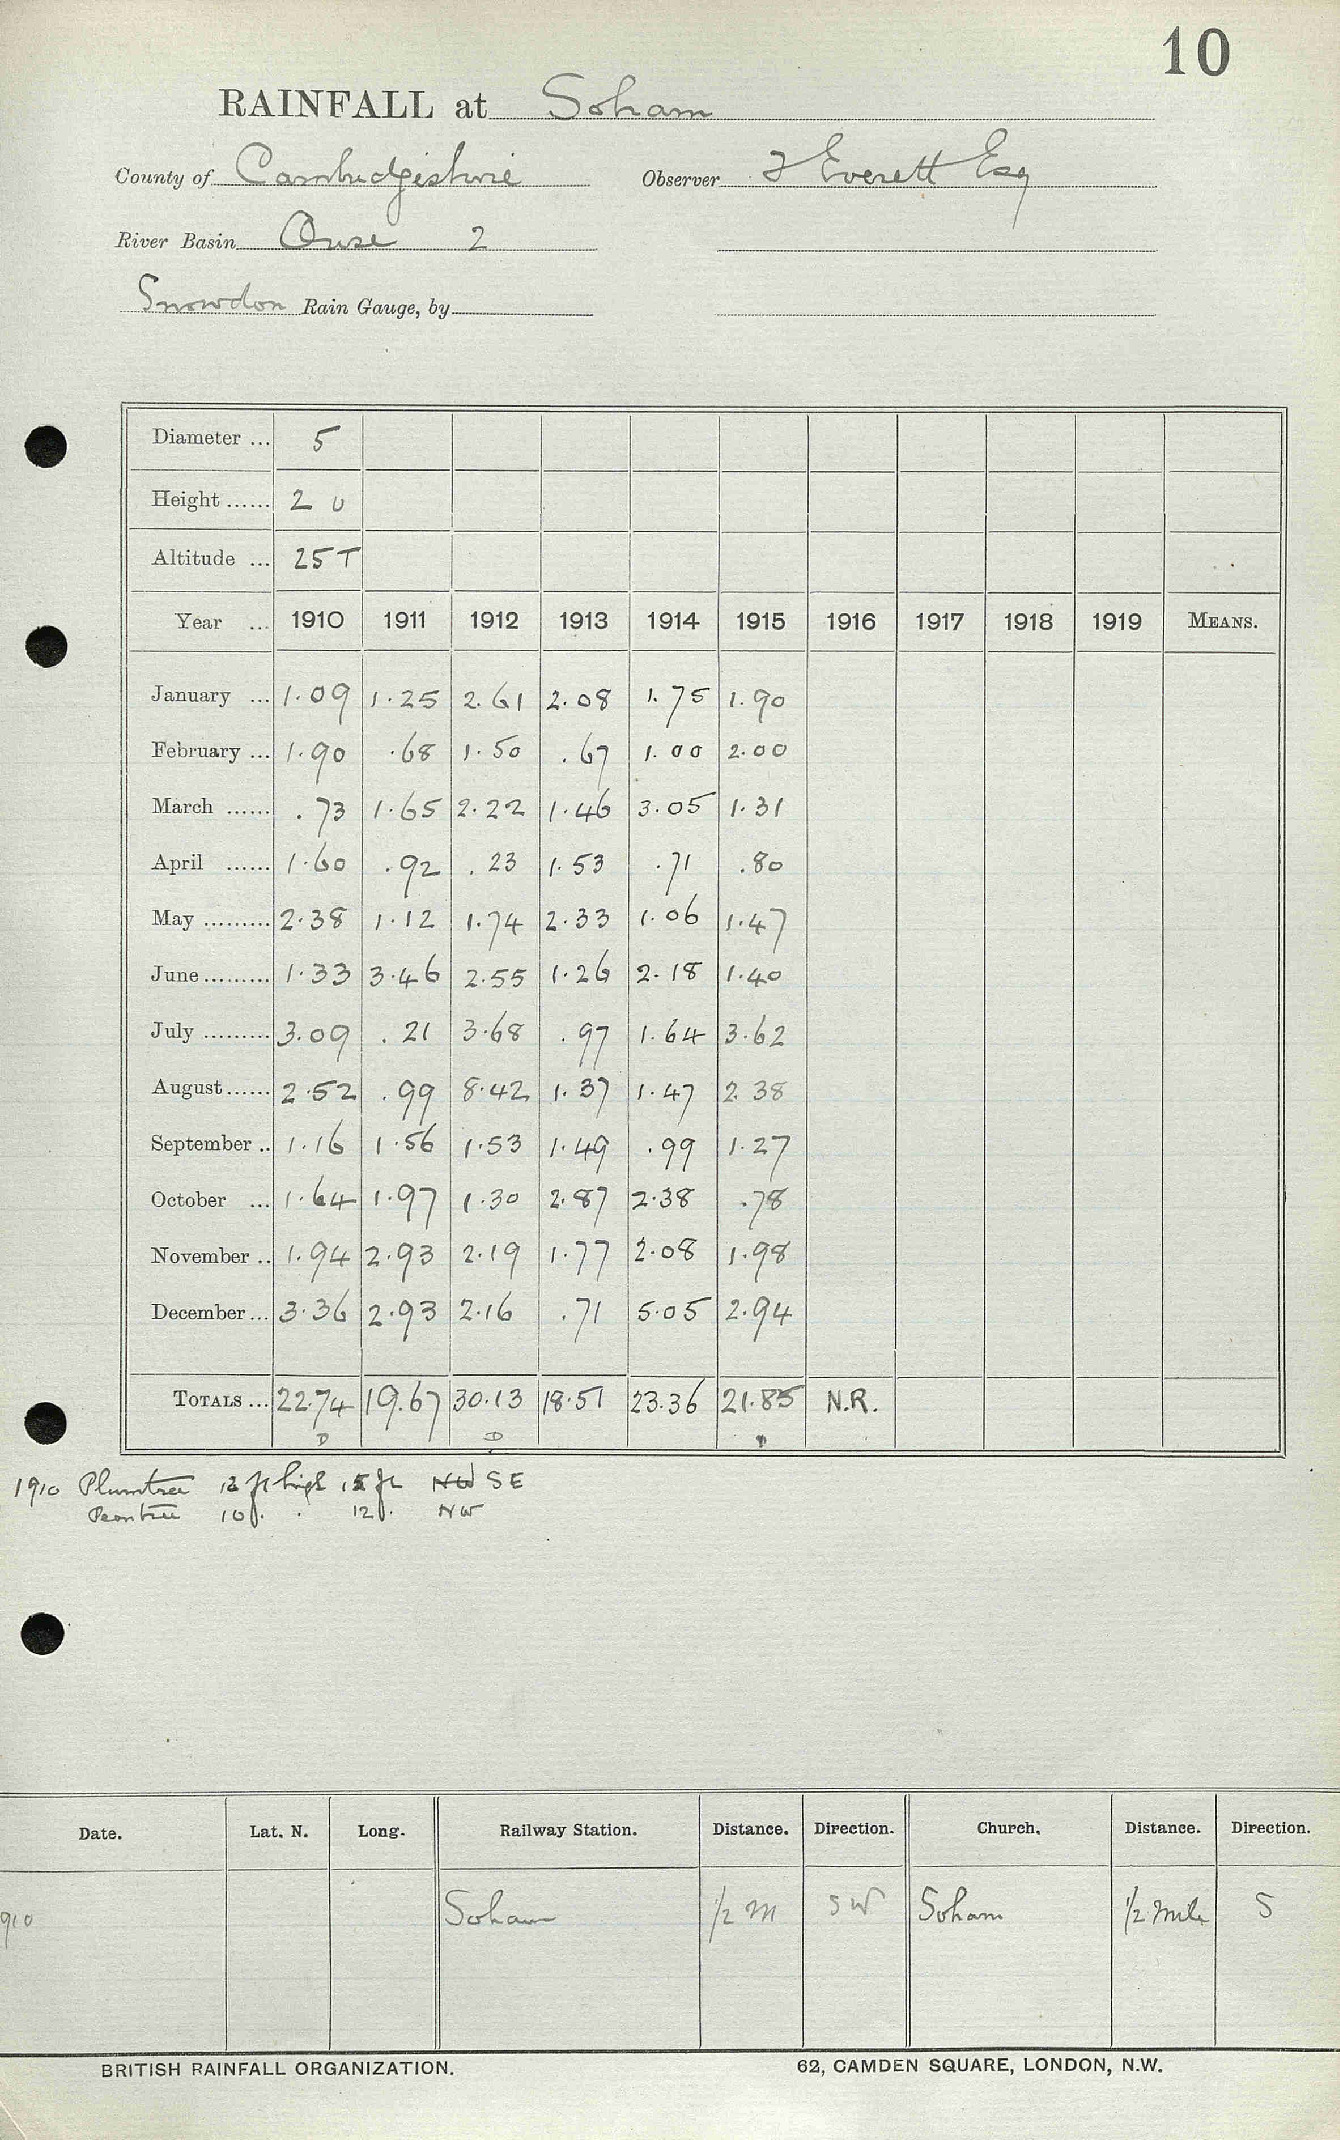 10
RAINFALL at Soham
County of Cambridgeshire Observer J Everett Esq
River Basin Ouse 2
Snowdon Rain Gauge, by
Diameter ... 5
Height ...... 2 0
Altitude ... 25T
Year ... 1910 1911 1912 1913 1914 1915 1916 1917 1918 1919 MEANS.
January ... 1.09 1.25 2.61 2.08 1.75 1.90
February ... 1.90 .68 1.50 .67 1.00 2.00
March ...... .73 1.65 2.22 1.46 3.05 1.31
April ...... 1.60 .92 .23 1.53 .71 .80
May ......... 2.38 1.12 1.74 2.33 1.06 1.47
June ......... 1.33 3.46 2.55 1.26 2.18 1.40
July ......... 3.09 .21 3.68 .97 1.64 3.62
August ...... 2.52 .99 8.42 1.37 1.47 2.38
September .. 1.16 1.56 1.53 1.49 .99 1.27
October ... 1.64 1.97 1.30 2.87 2.38 .78
November .. 1.94 2.93 2.19 1.77 2.08 1.98
December ... 3.36 2.93 2.16 .71 5.05 2.94
TOTALS ... 22.74 19.67 30.13 18.51 23.36 21.85 N.R.
D D
1910 Plumtree 12 ft high 15 ft NW SE
Peartree 10 f. . 12 f. NW
Date. Lat. N. Long. Railway Station. Distance. Direction. Church. Distance. Direction.
910 Soham 1/2 m SW Soham 1/2 mile S
BRITISH RAINFALL ORGANIZATION. 62, CAMDEN SQUARE, LONDON, N.W.